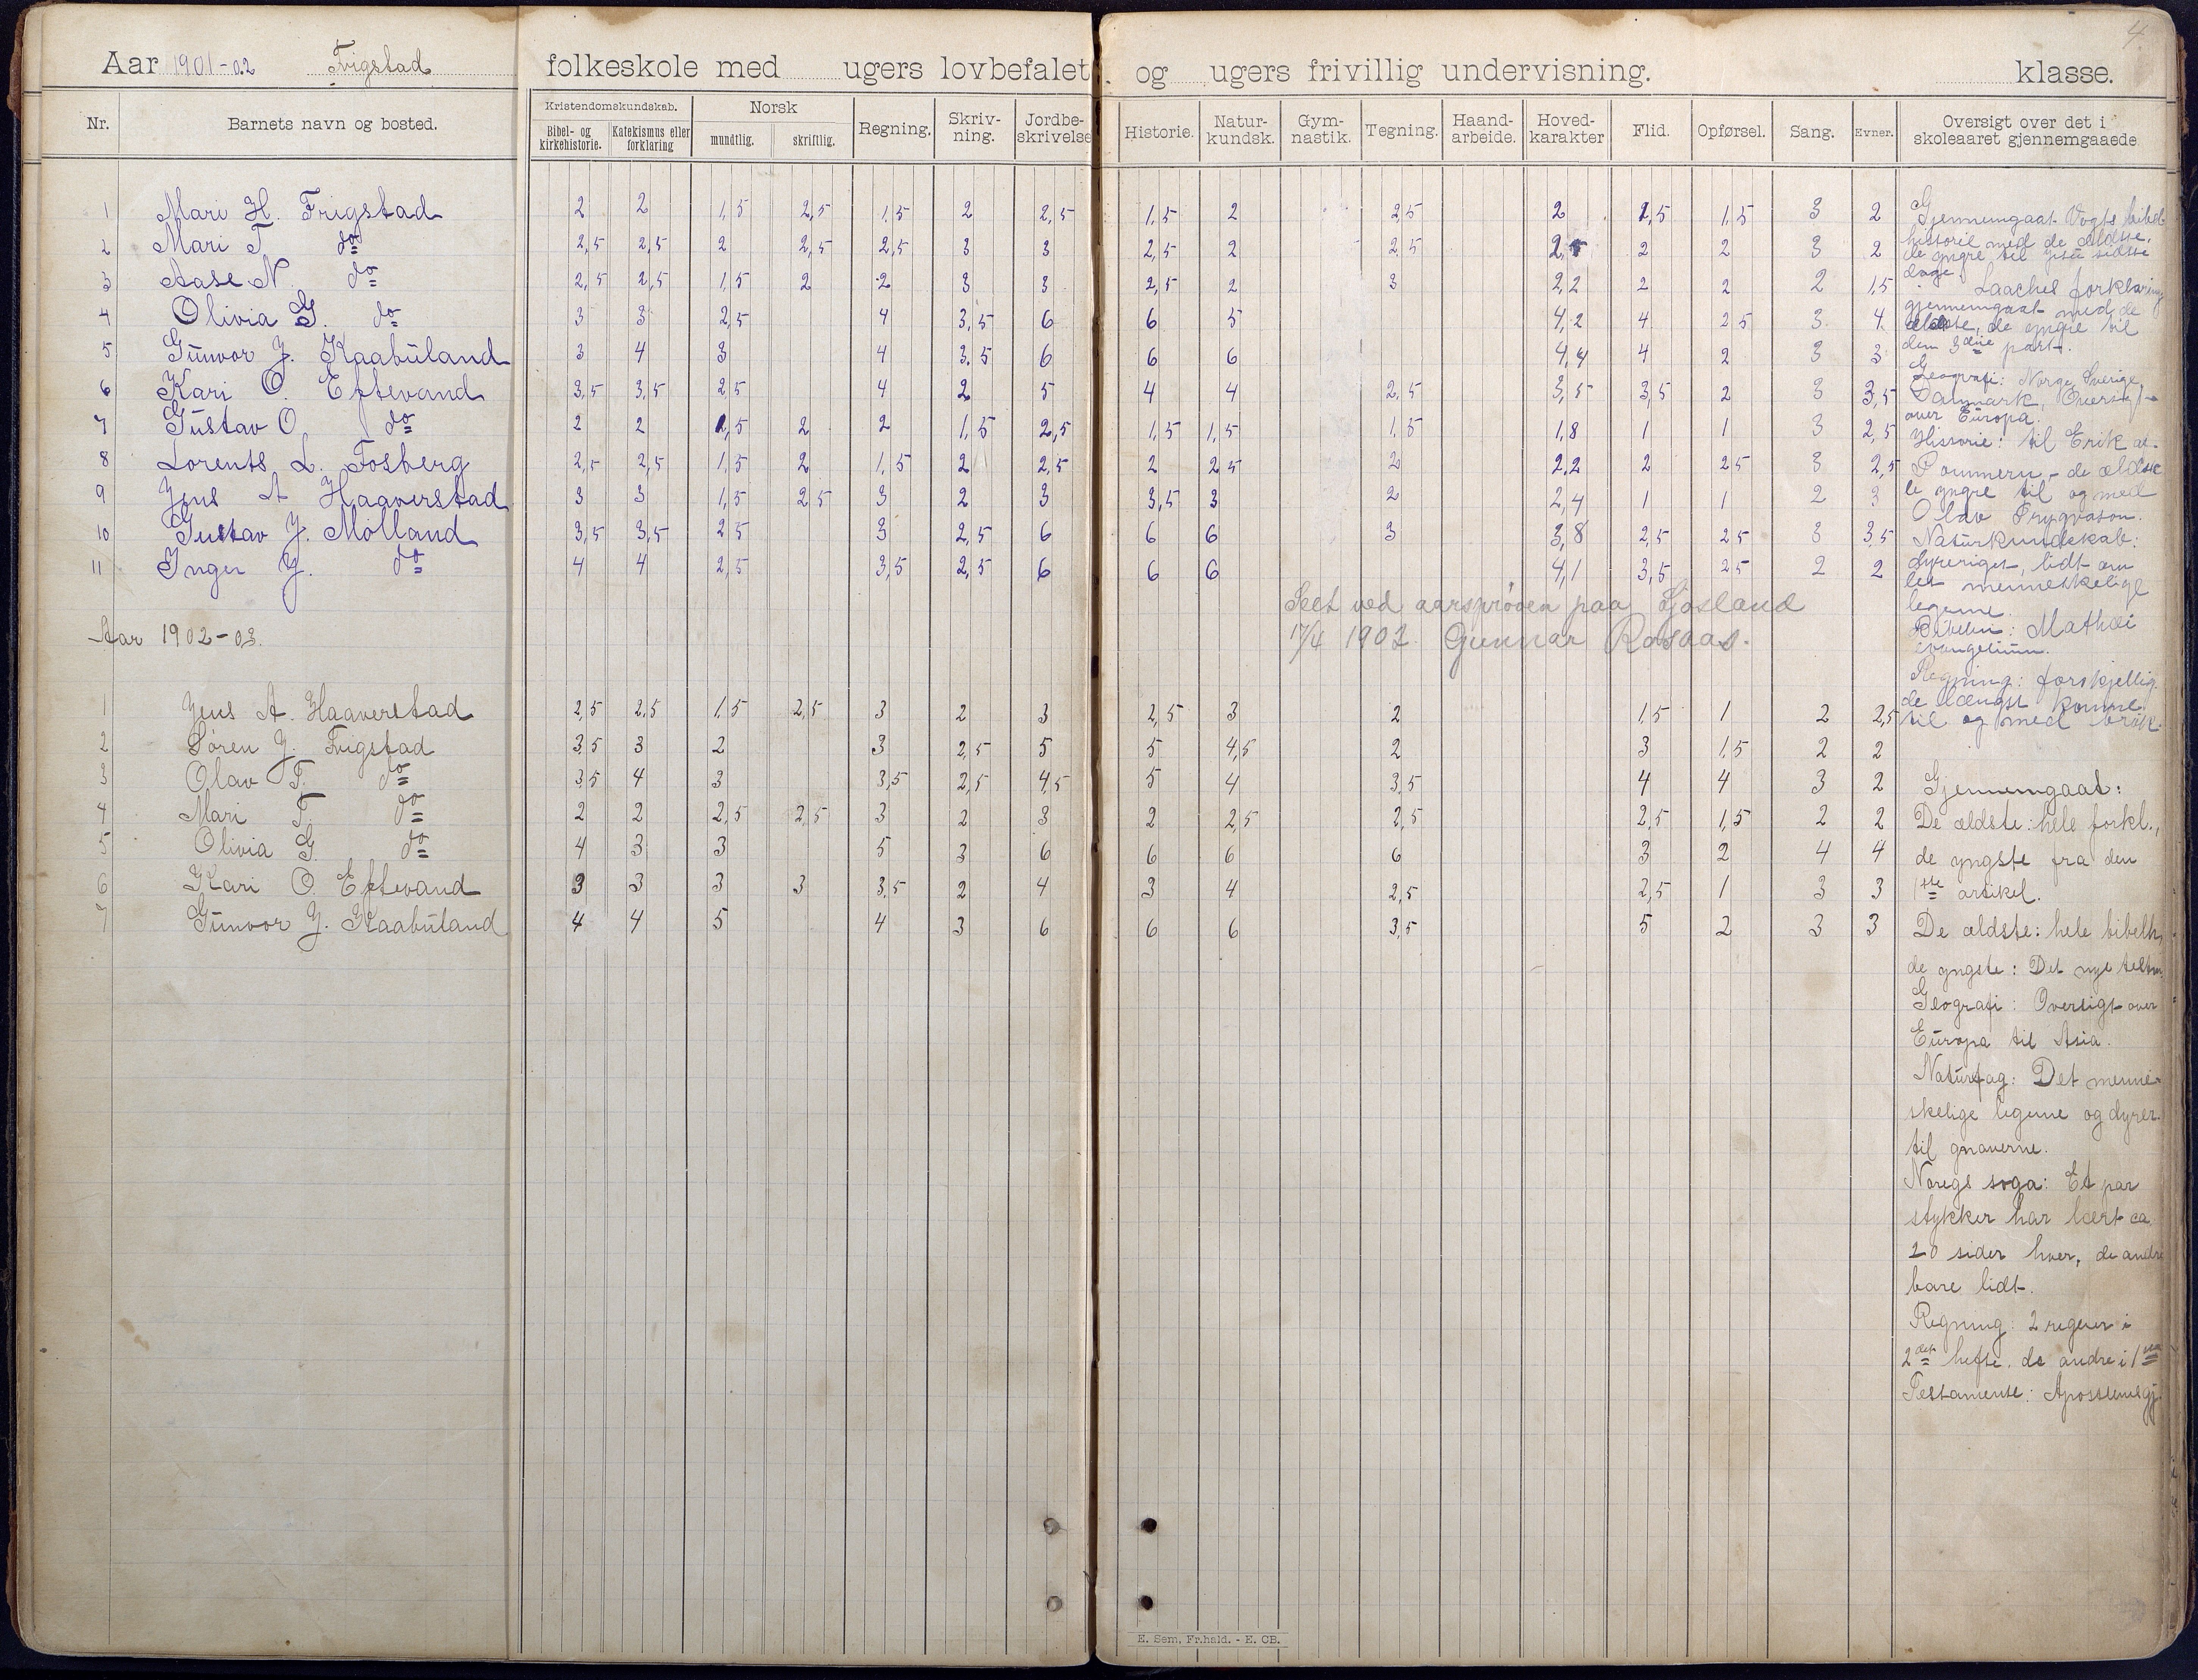 4.
Aar 1901-02 Frigstad folkeskole med ugers lovbefalet og ugers frivillig undervisning. klasse.
Nr. Barnets navn og bosted. Kristendomskundskab. Bibel- og kirkehistorie. Katekismus eller forklaring Norsk mundtlig. skriftlig. Regning. Skriv-ning. Jordbe-skrivelse Historie. Natur-kundsk. Gym-nastik. Tegning. Haand-arbeide. Hoved-karakter Flid. Opførsel. Sang. Evner. Oversigt over det i skoleaaret gjennemgaaede
1 Mari H. Frigstad 2 2 1,5 2,5 1,5 2 2,5 1,5 2 2,5 2 1,5 1,5 3 2
2 Mari T. do 2,5 2,5 2 2,5 2,5 3 3 2,5 2 2,5 2 2 3 2
3 Aase N. do 2,5 2,5 1,5 2 2 3 3 2,5 2 3 2,2 2 2 2 1,5
4 Olivia G. do 3 3 2,5 4 3,5 6 6 5 4,2 4 2,5 3 4
5 Gunvor J. Kaabuland 3 4 3 4 3,5 6 6 6 4,4 4 2 3 3
6 Kari O. Eftevand 3,5 3,5 2,5 4 2 5 4 4 2,5 3,5 3,5 2 3 3,5
7 Gustav O. do 2 2 1,5 2 2 1,5 2,5 1,5 1,5 1,5 1,8 1 1 3 2,5
8 Lorents L. Fosberg 2,5 2,5 1,5 2 1,5 2 2,5 2 2,5 2 2,2 2 2,5 3 2,5
9 Jens A Haaverstad 3 3 1,5 2,5 3 2 3 3,5 3 2 2,4 1 1 2 3
10 Gustav J. Mölland 3,5 3,5 2,5 3 2,5 6 6 6 3 3,8 2,5 2,5 3 3,5
11 Inger J. do 4 4 2,5 3,5 2,5 6 6 6 4,1 3,5 2,5 2 2
Seet ved aarsprøven paa Ljosland
17/4 1902. Gunnar Rosaas.
Gjennemgaat Vogts bibel-
historie med de ældste,
de yngre til Jesu sidste
dage. Laaches forklaring
gjennemgaat med de
ældste, de yngre til
den 3die part.
Geografi: Norge, Sverige,
Danmark, Oversigt
over Europa.
Historie: til Erik af
Pommern - de ældste
de yngre til og med
Olav Trygvason.
Naturkundskab:
dyreriget, lidt om
det menneskelige
legeme.
Bibelen: Mathæi
evangelium.
Regning: forskjellig.
de længst komne
til og med brøk.
Aar 1902-03.
1 Jens A. Haaverstad 2,5 2,5 1,5 2,5 3 2 3 2,5 3 2 1,5 1 2 2,5
2 Sören J. Frigstad 3,5 3 2 3 2,5 5 5 4,5 2 3 1,5 2 2
3 Olav T. do 3,5 4 3 3,5 2,5 4,5 5 4 3,5 4 4 3 2
4 Mari T. do 2 2 2,5 2,5 3 2 3 2 2,5 2,5 2,5 1,5 2 2
5 Olivia G. do 4 3 3 5 3 6 6 6 6 3 2 4 4
6 Kari O. Eftevand 3 3 3 3 3,5 2 4 3 4 2,5 2,5 1 3 3
7 Gunvor J. Kaabuland 4 4 5 4 3 6 6 6 3,5 5 2 3 3
Gjennemgaat:
De ældste: hele forkl.,
de yngste fra den
1ste artikel.
De ældste: hele bibelh,
de yngste: Det nye testm.
Geografi: Oversigt over
Europa til Asia.
Naturfag: Det menne-
skelige legeme og dyrer.
til gnaverne.
Noregs soga: Et par
stykker har lært ca
20 sider hver, de andre
bare lidt.
Regning: 2 regner i
2det hefte, de andre i 1ste
Testamente: Apostlenes gj.
E. Sem, Fr.hald. - E. CB.